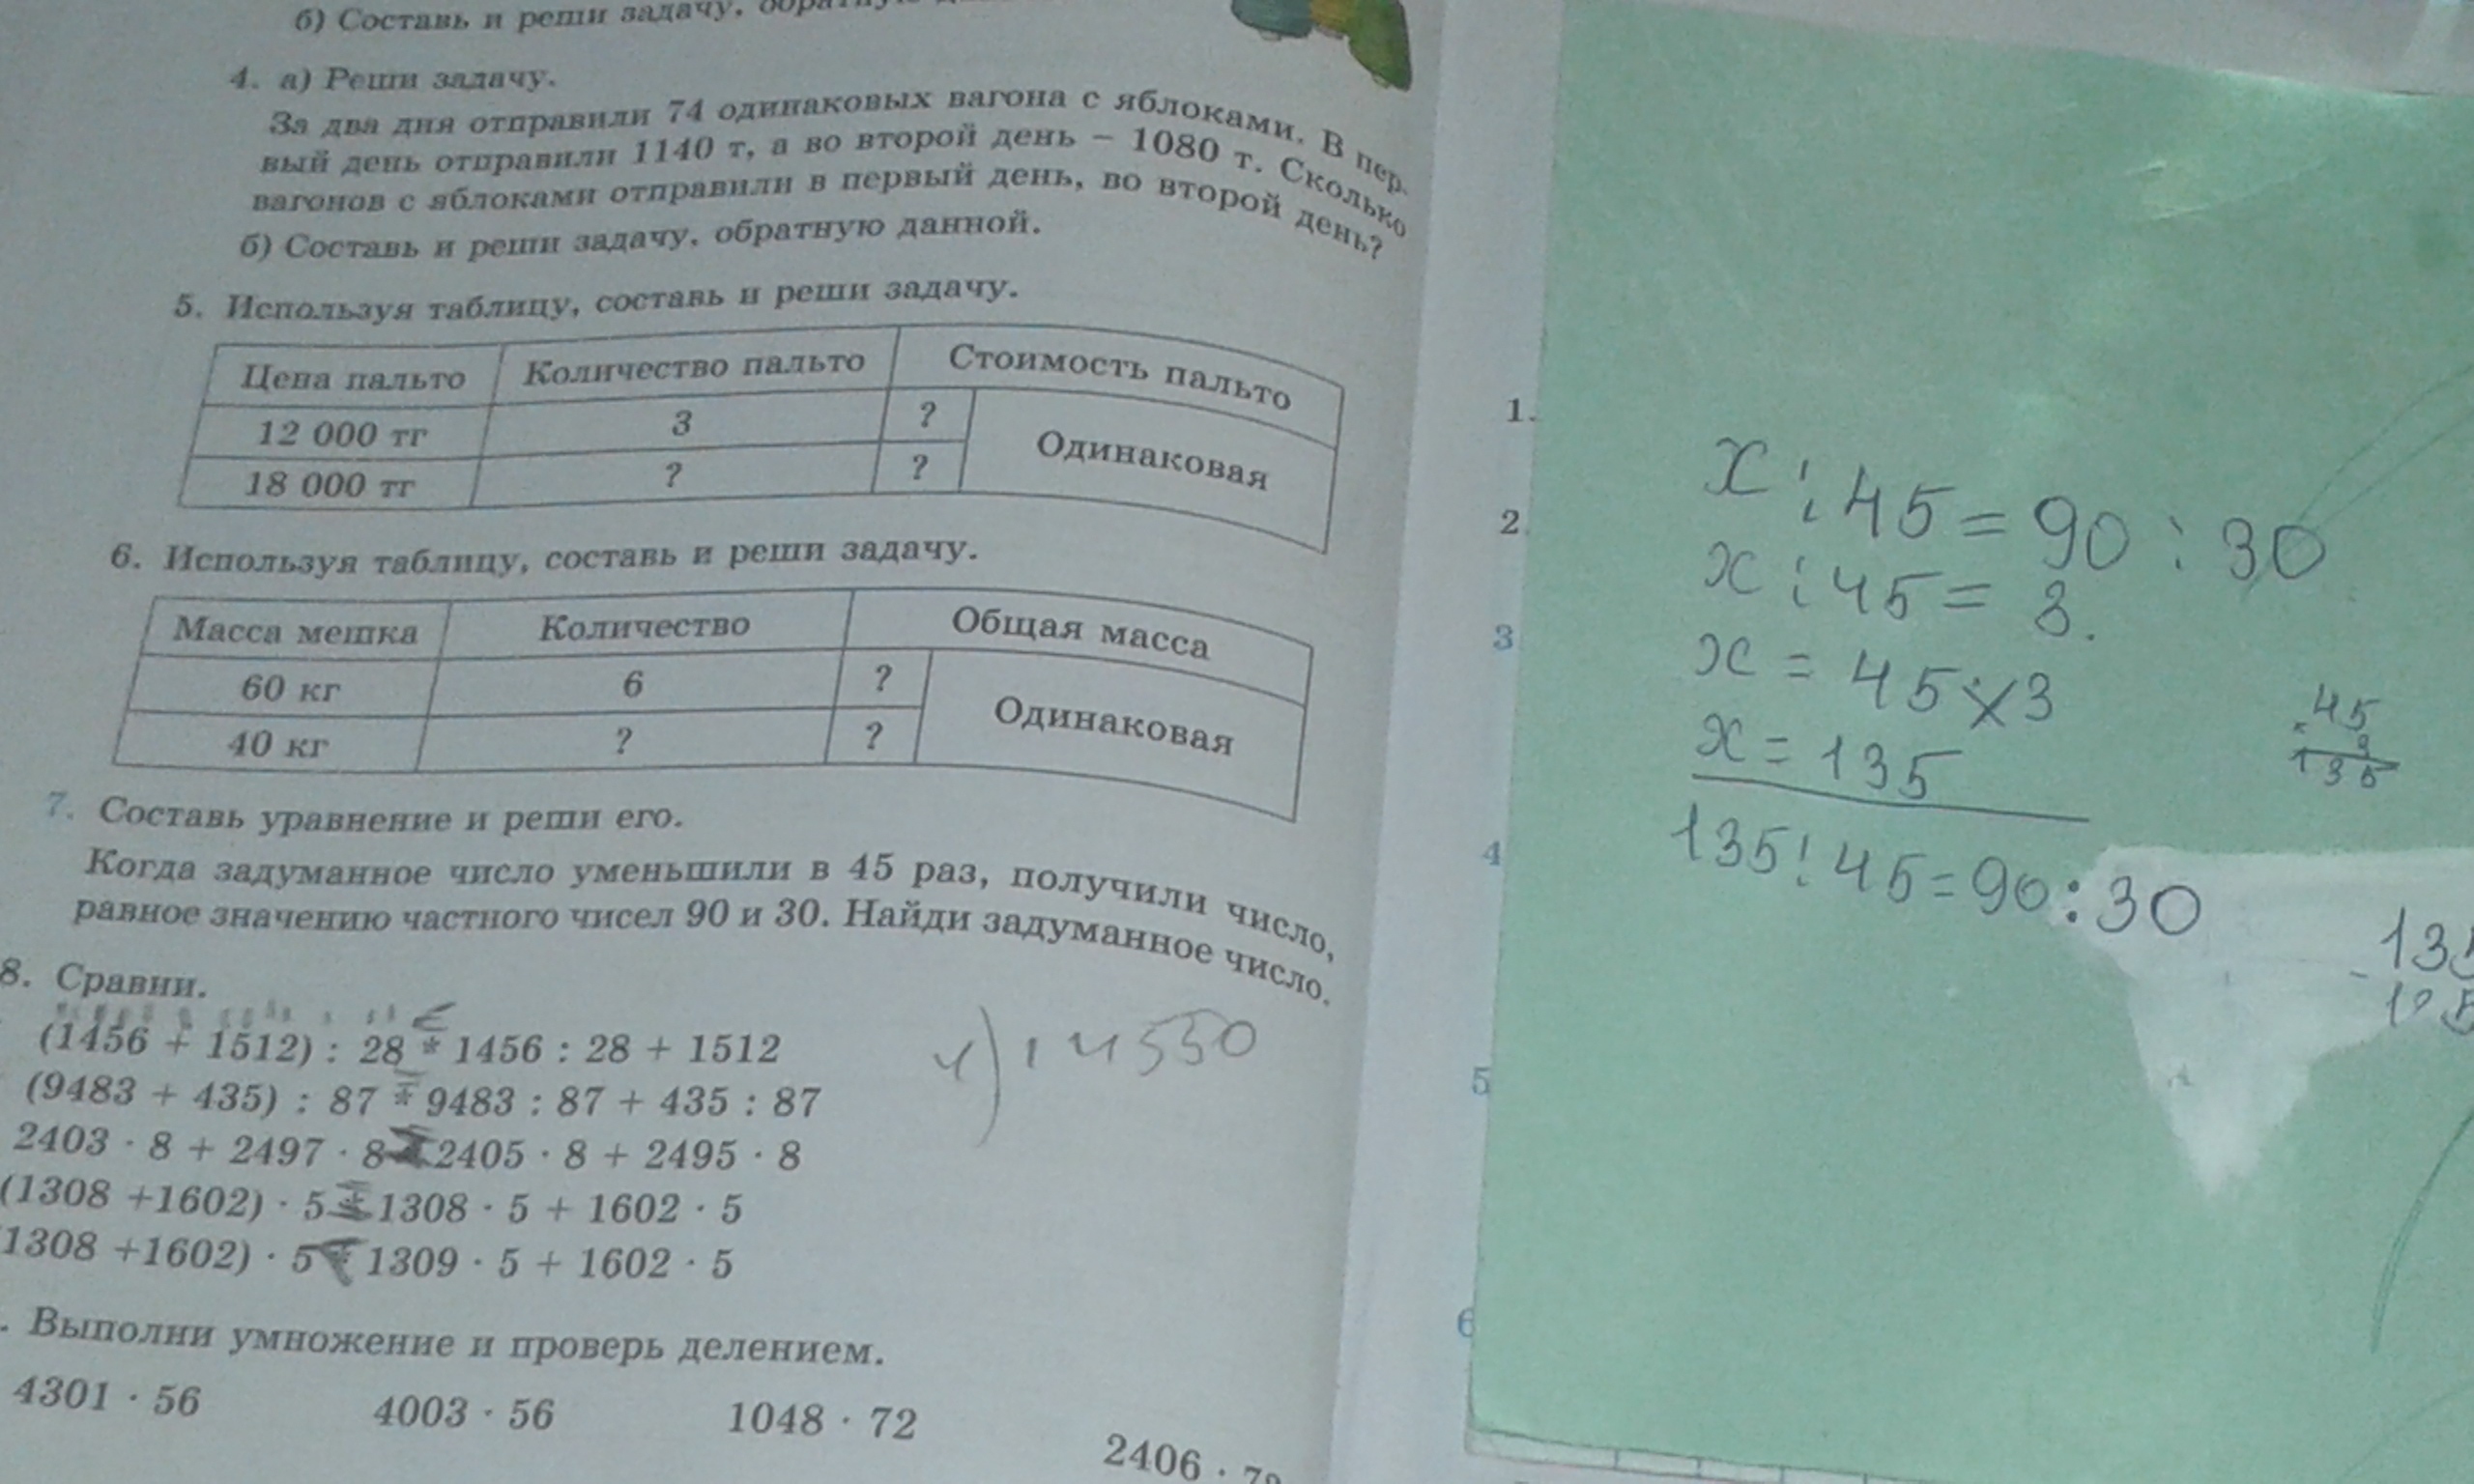 б) Составь и реши задачу,
4. а) Реши задачу.
За два дня отправили 74 одинаковых вагона с яблоками. В пер-
вый день отправили 1140 т, а во второй день – 1080 т. Сколько
вагонов с яблоками отправили в первый день, во второй день?
б) Составь и реши задачу, обратную данной.
5. Используя таблицу, составь и реши задачу.
Цена пальто Количество пальто Стоимость пальто
12 000 тг 3 ? Одинаковая
18 000 тг ? ?
6. Используя таблицу, составь и реши задачу.
Масса мешка Количество Общая масса
60 кг 6 ? Одинаковая
40 кг ? ?
7. Составь уравнение и реши его.
Когда задуманное число уменьшили в 45 раз, получили число,
равное значению частного чисел 90 и 30. Найди задуманное число.
8. Сравни.
(1456 + 1512) : 28 * 1456 : 28 + 1512
(9483 + 435) : 87 * 9483 : 87 + 435 : 87
2403 · 8 + 2497 · 8 * 2405 · 8 + 2495 · 8
(1308 +1602) · 5 * 1308 · 5 + 1602 · 5
1308 +1602) · 5 * 1309 · 5 + 1602 · 5
4) 14550
. Выполни умножение и проверь делением.
4301 · 56 4003 · 56 1048 · 72 2406 ·
1.
2
3
4
5
6
x : 45 = 90 : 30
x : 45 = 3.
x = 45 × 3
x = 135
135 : 45 = 90 : 30
45
3
135